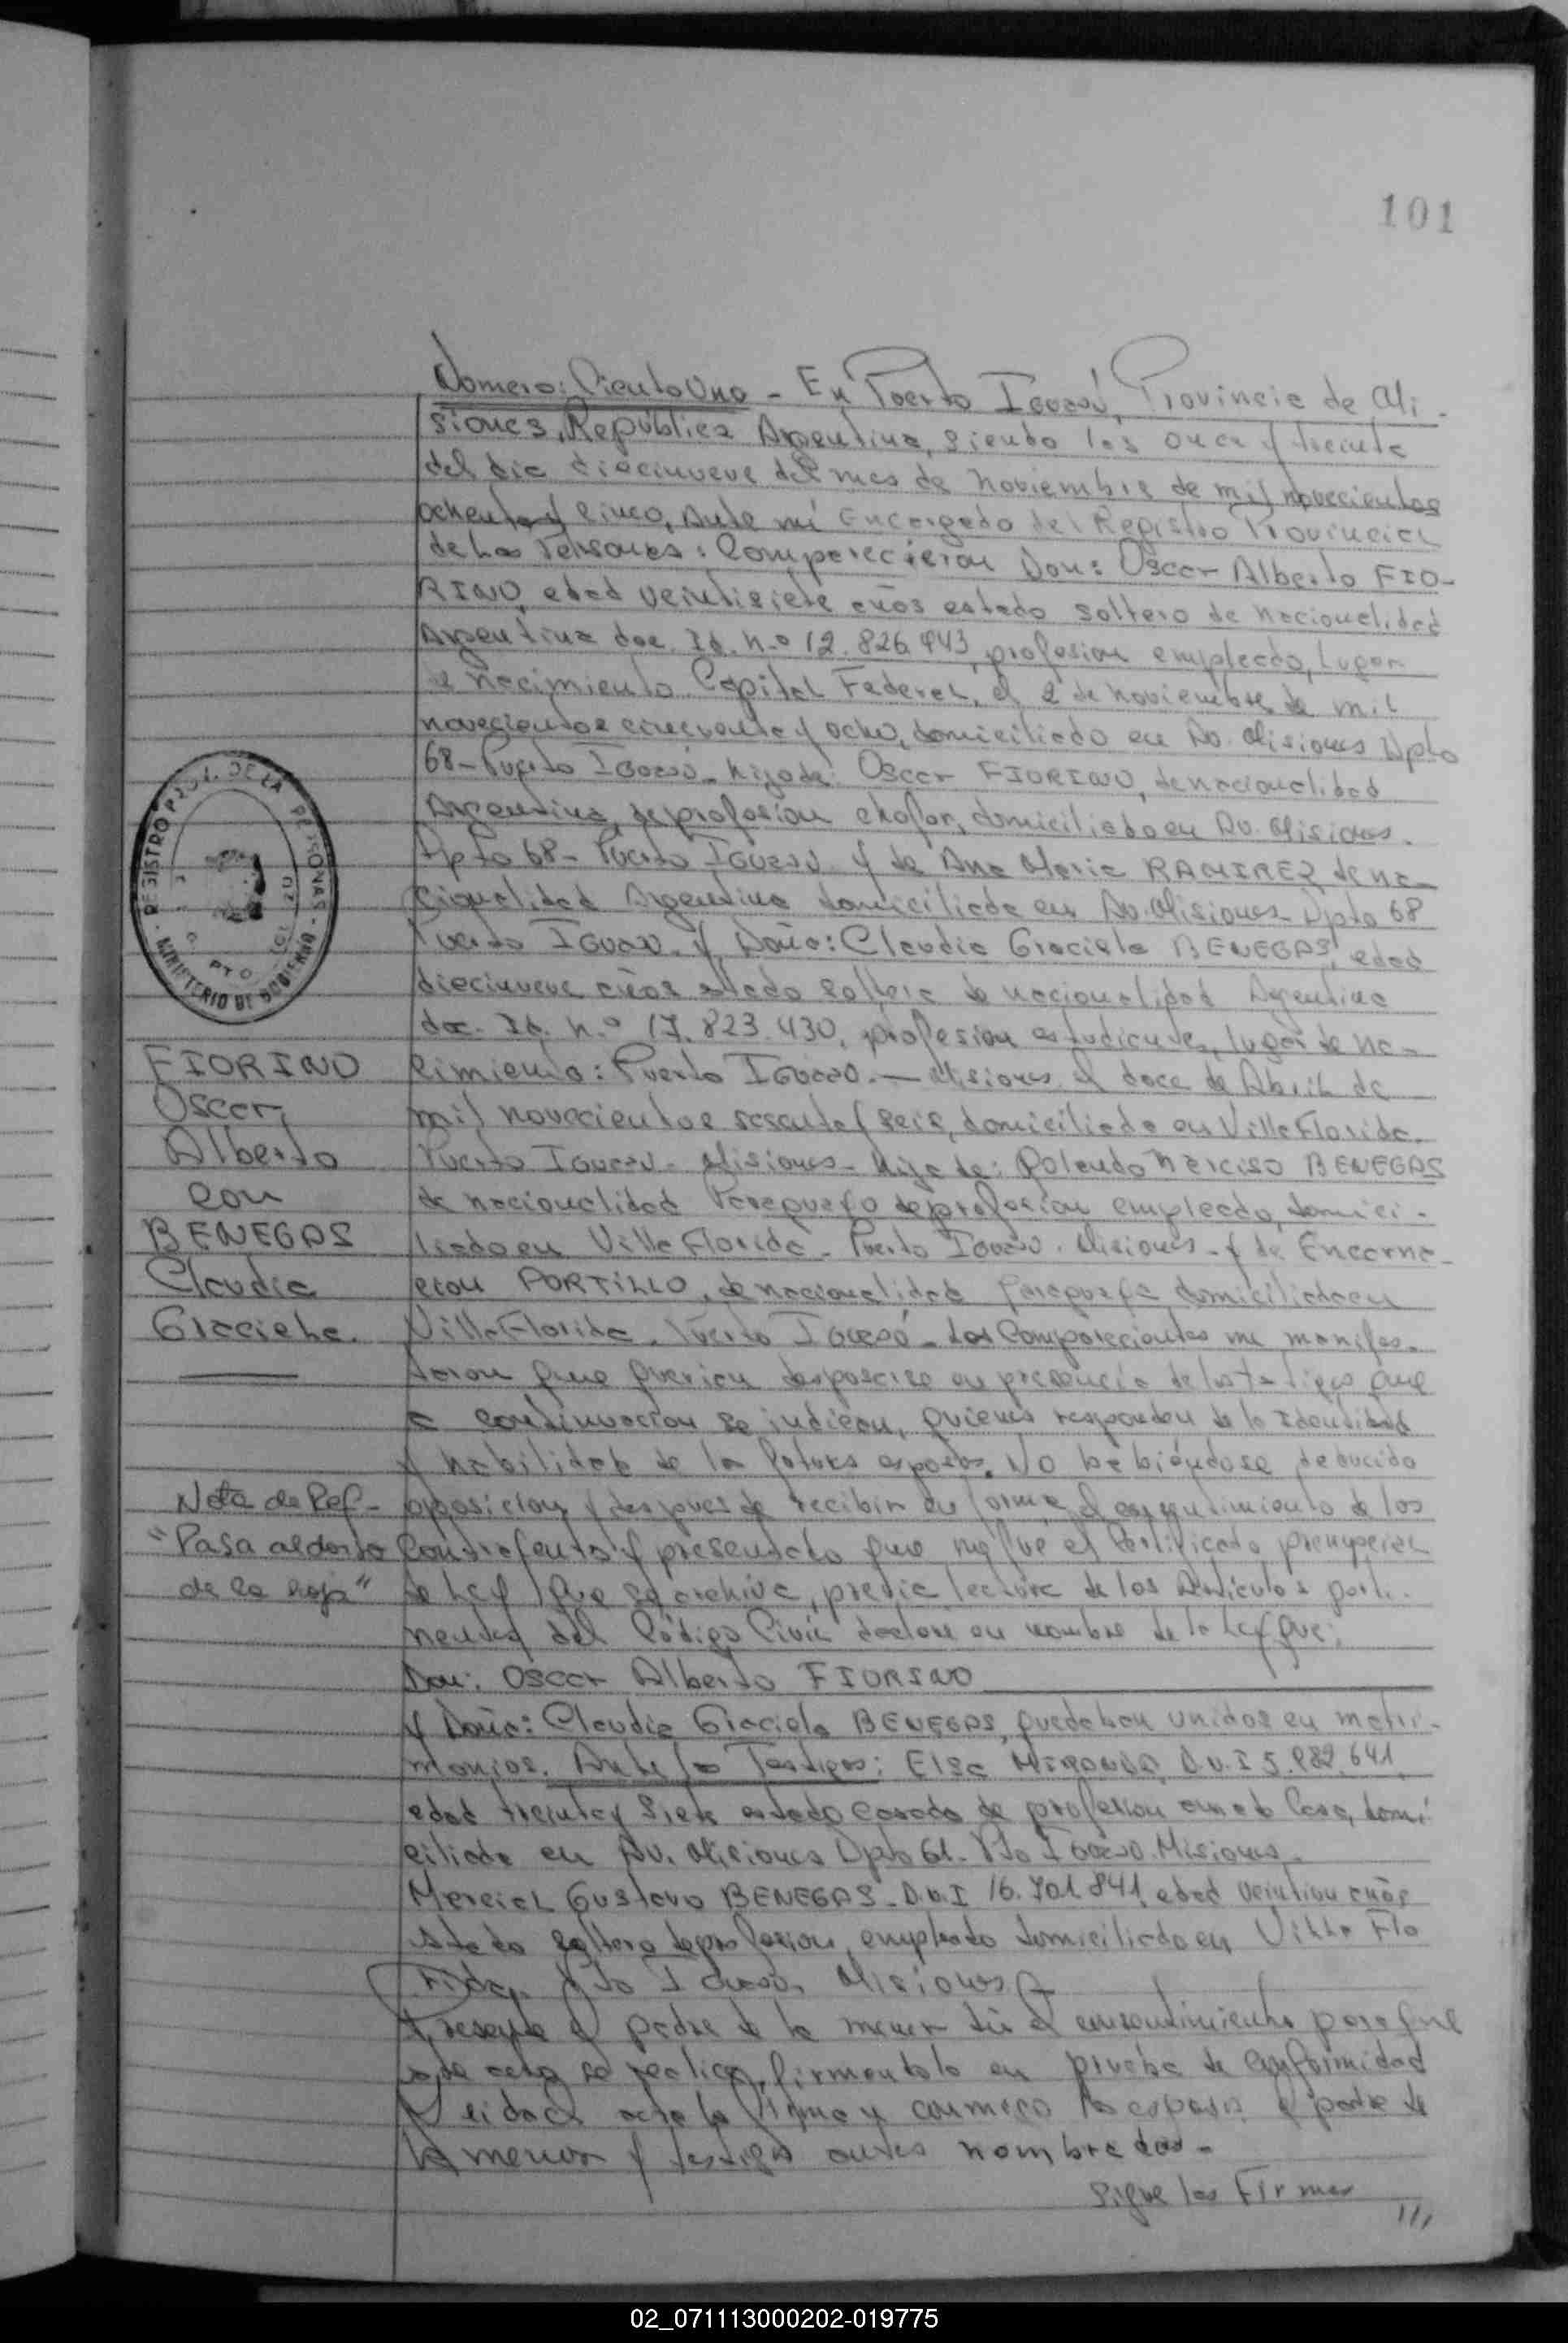 101
Número: Ciento Uno - En Puerto Iguazú, Provincia de Mi-
siones, República Argentina, siendo las once y treinta
del dia diecinueve del mes de Noviembre de mil novecientos
ochenta y cinco, Ante mí Encargado del Registro Provincial
de las Personas: Comparecieron Don: Oscar Alberto FIO-
RINO, edad veintisiete años estado soltero de nacionalidad
Argentina doc. Id. n.º 12.826.443, profesion empleado, lugar
de nacimiento Capital Federal, el 2 de noviembre de mil
novecientos cincuenta y ocho, domiciliado en Av. Misiones Dpto
68 - Puerto Iguazú - hijo de: Oscar FIORINO, de nacionalidad
Argentina, de profesion chofer, domiciliado en Av. Misiones.
Dpto 68 - Puerto Iguazú y de Ana Maria RAMIREZ de na-
cionalidad Argentina domiciliada en Av. Misiones Dpto 68
Puerto Iguazú. Y Doña: Claudia Graciela BENEGAS, edad
diecinueve años estado soltera de nacionalidad Argentina
doc. Id. n.º 17.823.430, profesion estudiante, lugar de na-
cimiento: Puerto Iguazú. — Misiones el doce de Abril de
mil novecientos sesenta y seis, domiciliada en Villa Florida.
Puerto Iguazú - Misiones - Hija de: Narciso BENEGAS
de nacionalidad Paraguayo de profesion empleado, domici-
liado en Villa Florida - Puerto Iguazú. Misiones - y de Encarna-
cion PORTILLO, de nacionalidad Paraguaya domiciliada en
Villa Florida. Puerto Iguazú - Los Comparecientes me manifes-
taron que querian desposarse en presencia de los testigos que
a continuacion se indican, quienes responden de la Identidad
y habilidad de los futuros esposos. No habiéndose deducido
oposicion y despues de recibir en forma el consentimiento de los
contrayentes y presentado que me fue el Certificado prenupcial
de Ley que se archiva, previa lectura de los Artículos perti-
nentes del Código Civil declaré en nombre de la Ley que:
Don: Oscar Alberto FIORINO
y Doña: Claudia Graciela BENEGAS, quedaban unidos en matri-
monios. Ante los Testigos: Elsa MIRANDA, D.N.I 5.982.641,
edad treinta y siete estado casada de profesion ama de casa, domi
ciliada en Av. Misiones Dpto 61. Pto Iguazú. Misiones.
Marcial Gustavo BENEGAS - D.N.I 16.701.841, edad veintiun años
estado soltero de profesion, empleado domiciliado en Villa Flo
rida. Pto Iguazú. Misiones
Presente el padre de la menor dió el consentimiento para que
este acto se realice, firmandolo en prueba de conformidad
leida el acta la firman conmigo los esposos el padre de
la menor y testigos antes nombrados -
Sigue las Firmas
///
REGISTRO PROV. DE LAS PERSONAS
MINISTERIO DE GOBIERNO
PTO
FIORINO
Oscar
Alberto
con
BENEGAS
Claudia
Graciela.
Nota de Ref-
"Pasa al dorso
de la hoja"
02_071113000202-019775